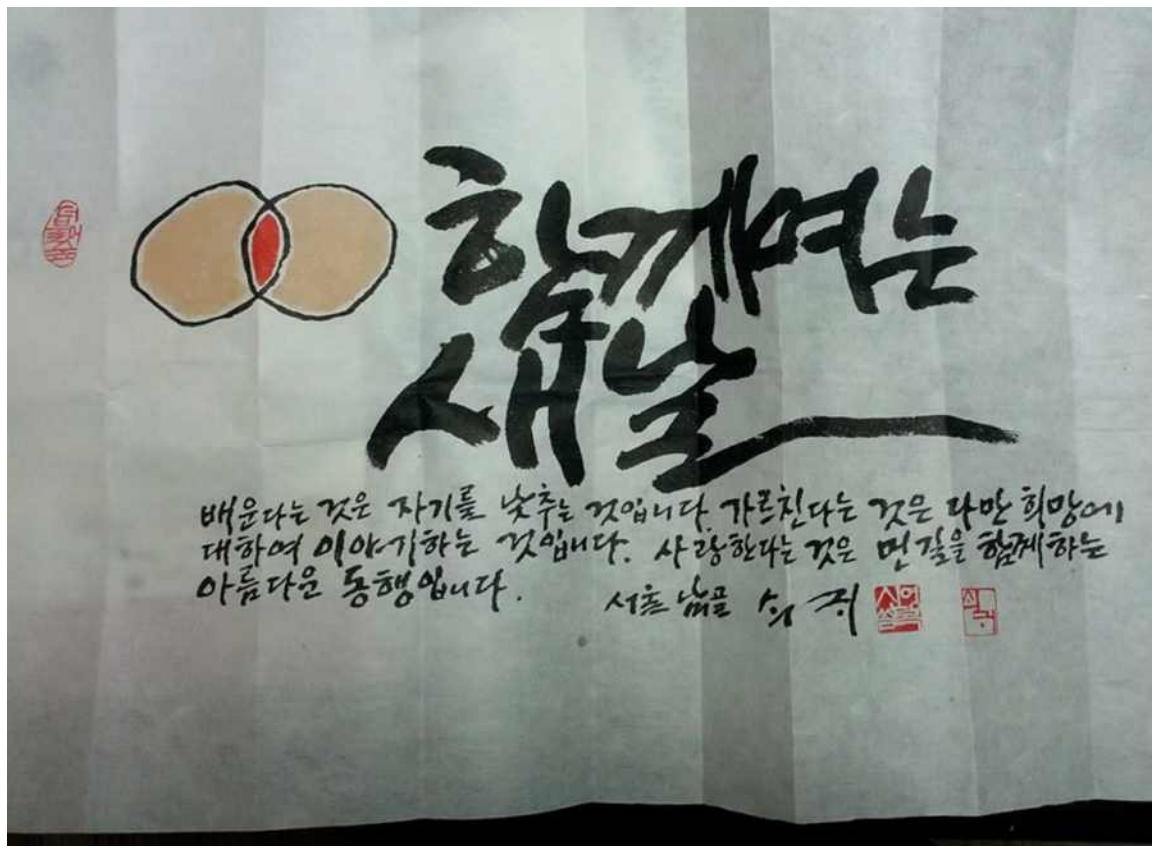 함께여는
새날
배운다는 것은 자기를 낮추는 것입니다. 가르친다는 것은 다만 희망에
대하여 이야기하는 것입니다. 사랑한다는 것은 먼길을 함께하는
아름다운 동행입니다.
서울